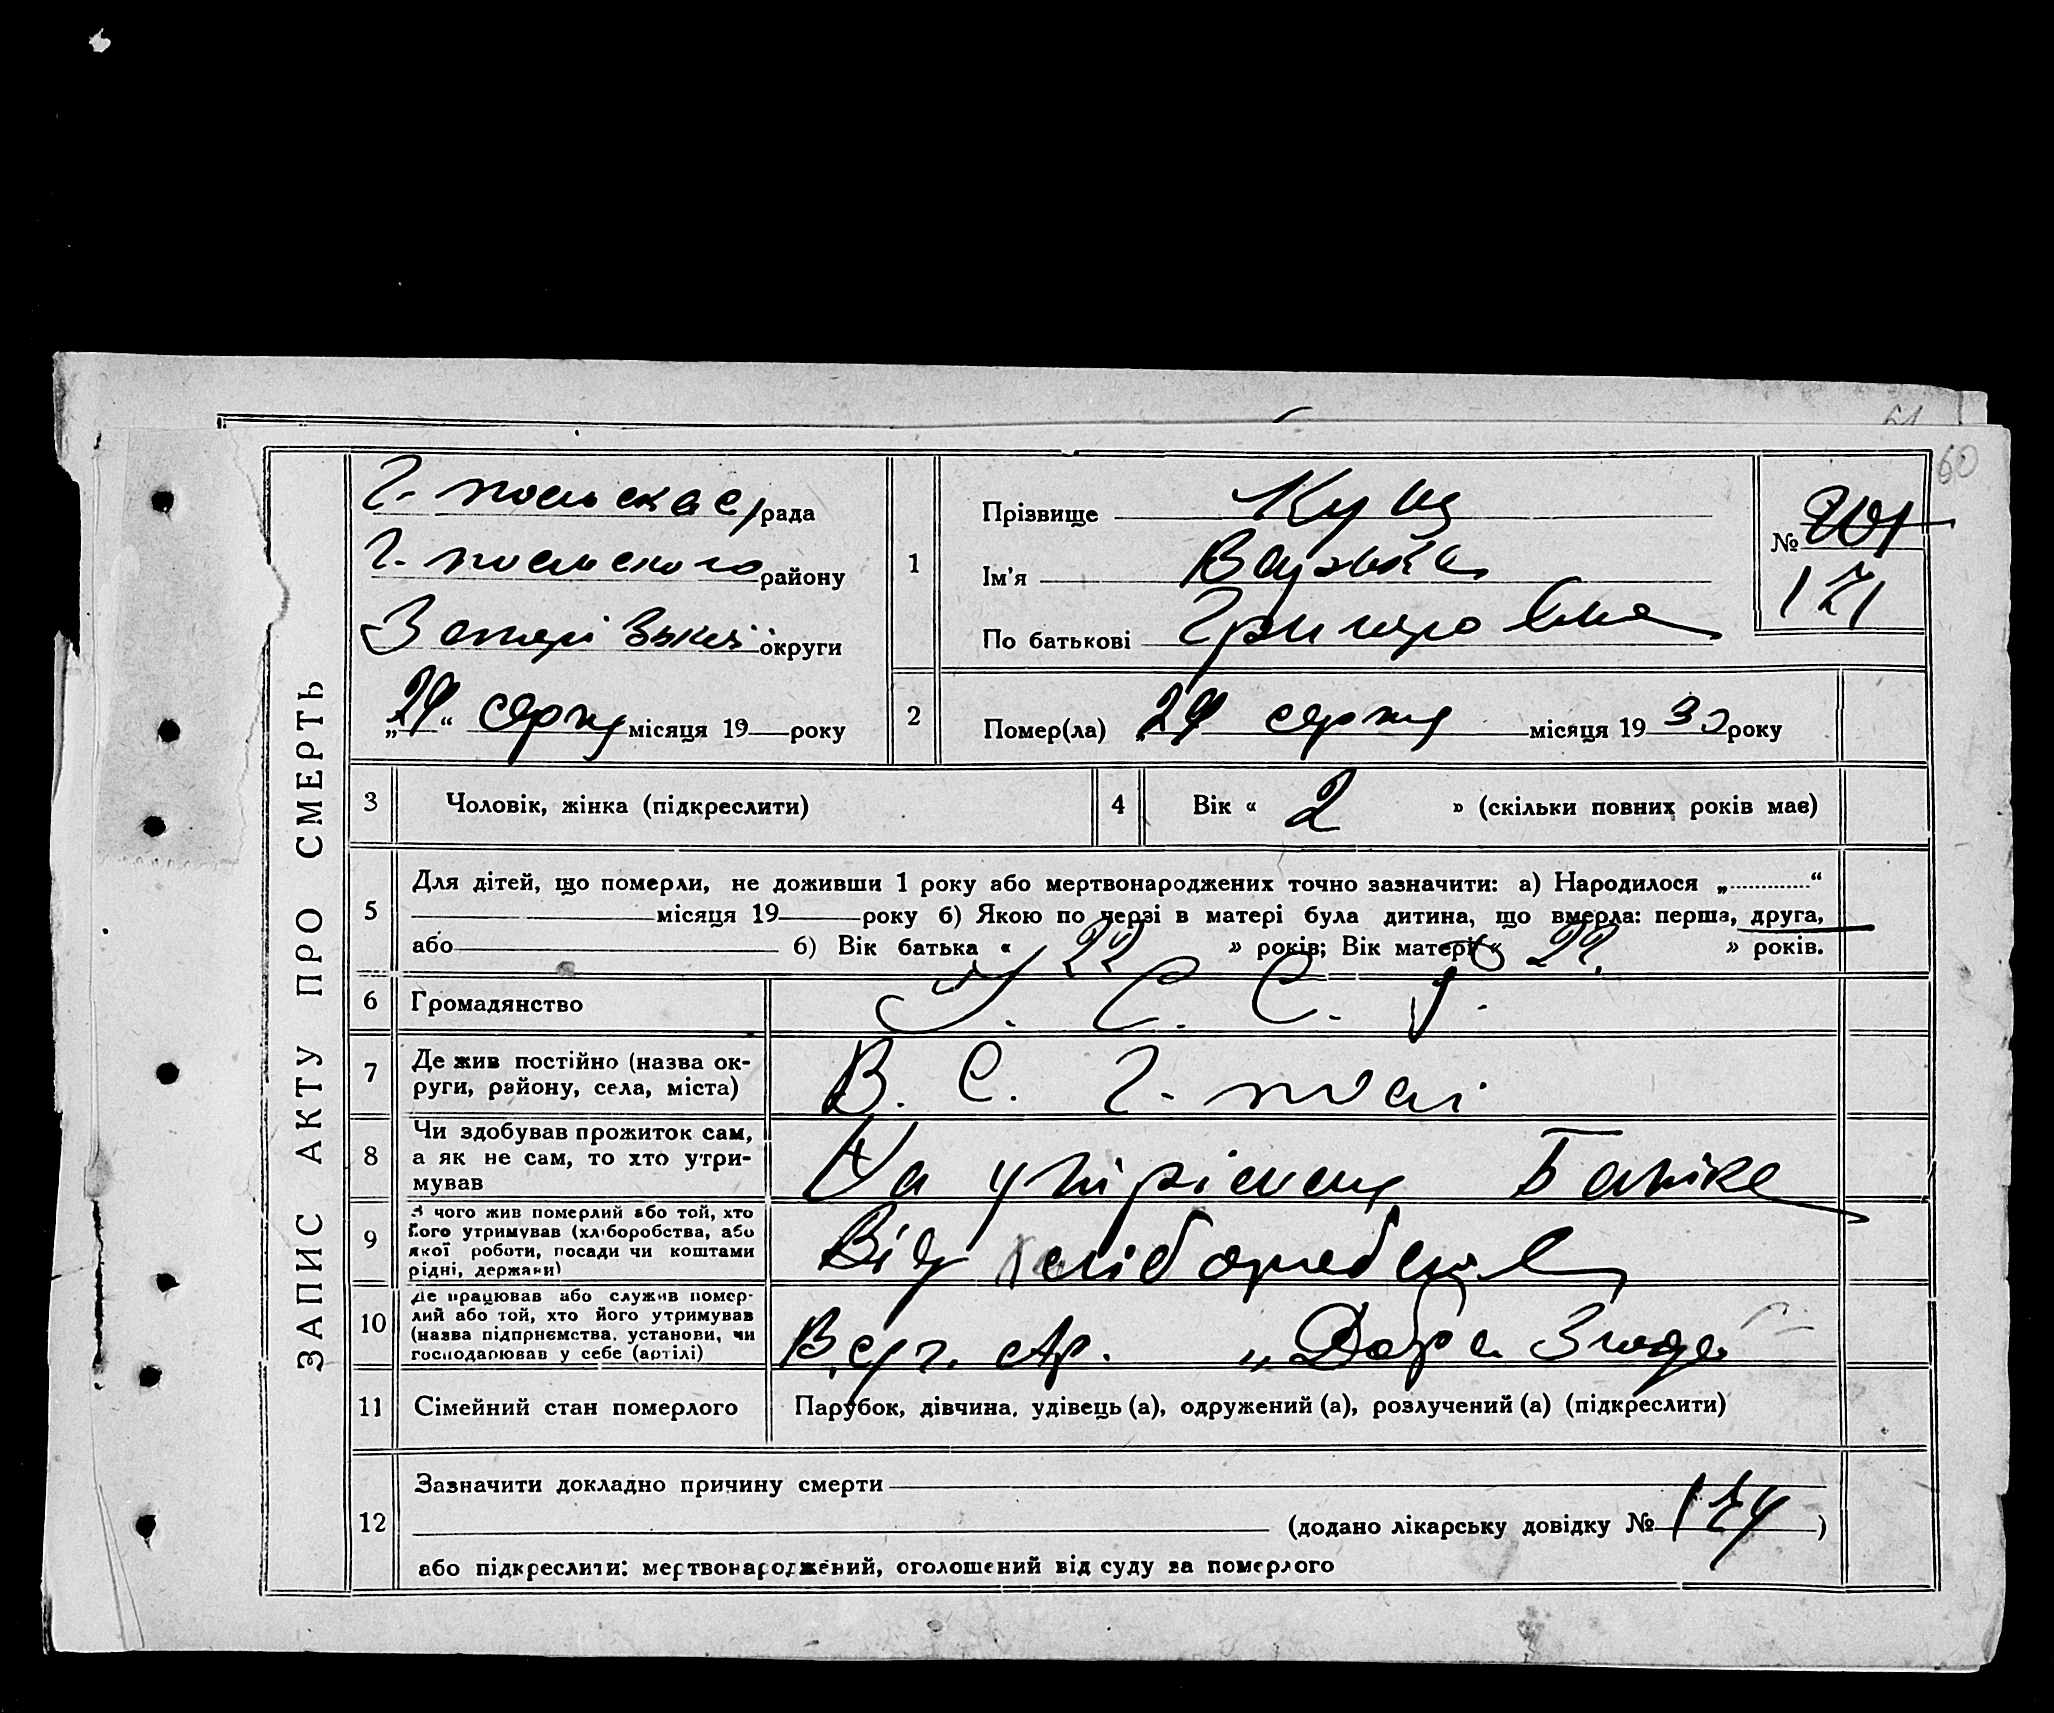 60
ЗАПИС АКТУ ПРО СМЕРТЬ
рада
району
округи
„29“ серпня місяця 19 року
1
Прізвище Куц
Ім'я
По батькові Григоровна
№ 201
171
2
Помер(ла) „29 серпня місяця 1930 року
3
Чоловік, жінка (підкреслити)
4
Вік « 2 » (скільки повних років має)
5
Для дітей, що померли, не доживши 1 року або мертвонароджених точно зазначити: а) Народилося „ “
місяця 19 року б) Якою по черзі в матері була дитина, що вмерла: перша, друга,
або б) Вік батька « 22 » років; Вік матері « 22 » років.
6
Громадянство
У. С. С. Р.
7
Де жив постійно (назва ок-
руги, району, села, міста)
В. С. Г.
8
Чи здобував прожиток сам,
а як не сам, то хто утри-
мував
На утрiманню Батька
9
З чого жив померлий або той, хто
його утримував (хліборобства, або
якої роботи, посади чи коштами
рідні, держави)
Від хліборобства
10
Де працював або служив помер-
лий або той, хто його утримував
(назва підприємства, установи, чи
господарював у себе (артілі)
Ар. „Добра Згода
11
Сімейний стан померлого
Парубок, дівчина, удівець (а), одружений (а), розлучений (а) (підкреслити)
12
Зазначити докладно причину смерти
(додано лікарську довідку № 174)
або підкреслити: мертвонароджений, оголошений від суду за померлого